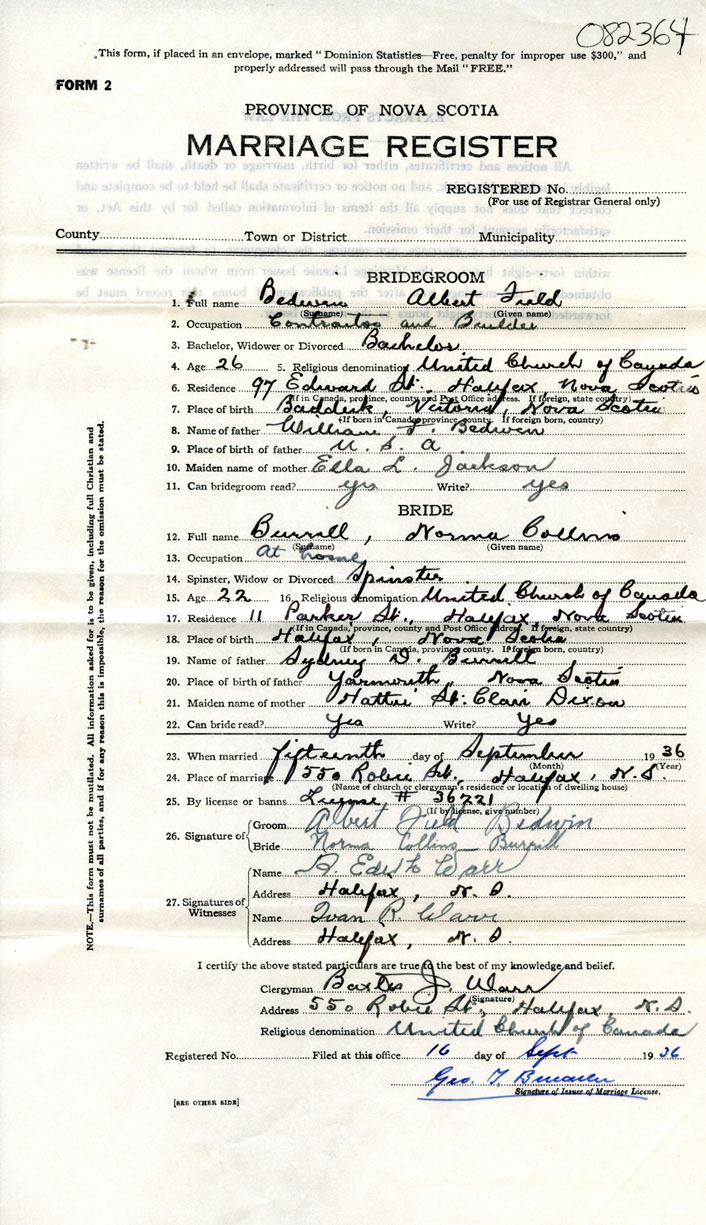 082364
This form, if placed in an envelope, marked "Dominion Statistics—Free, penalty for improper use $300," and
properly addressed will pass through the Mail "FREE."
FORM 2
PROVINCE OF NOVA SCOTIA
MARRIAGE REGISTER
REGISTERED No.
(For use of Registrar General only)
County Town or District Municipality
BRIDEGROOM
1. Full name Bedwin Albert Field
(Surname) (Given name)
2. Occupation Contractor and Builder
3. Bachelor, Widower or Divorced Bachelor
4. Age 26 5. Religious denomination United Church of Canada
6. Residence 97 Edward St. Halifax Nova Scotia
(If in Canada, province, county and Post Office address. If foreign, state country)
7. Place of birth Baddeck, Victoria, Nova Scotia
(If born in Canada, province, county. If foreign born, country)
8. Name of father William F. Bedwin
9. Place of birth of father U. S. A.
10. Maiden name of mother Ella L. Jackson
11. Can bridegroom read? yes Write? yes
BRIDE
12. Full name Burrill, Norma Collins
(Surname) (Given name)
13. Occupation At home
14. Spinster, Widow or Divorced Spinster
15. Age 22 16. Religious denomination United Church of Canada
17. Residence 11 Parker St., Halifax, Nova Scotia
(If in Canada, province, county and Post Office address. If foreign, state country)
18. Place of birth Halifax, Nova Scotia
(If born in Canada, province, county. If foreign born, country)
19. Name of father Sydney D. Burrill
20. Place of birth of father Yarmouth, Nova Scotia
21. Maiden name of mother Hattie St. Clair Dixon
22. Can bride read? Yes Write? Yes
23. When married fifteenth day of September 1936
(Month) (Year)
24. Place of marriage 550 Robie St., Halifax, N.S.
(Name of church or clergyman's residence or location of dwelling house)
25. By license or banns License # 36221
(If by license, give number)
26. Signature of Groom Albert Field Bedwin
Bride Norma Collins Burrill
27. Signatures of Witnesses
Name A. Edith Warr
Address Halifax, N. S.
Name Ivan R. Warr
Address Halifax, N. S.
I certify the above stated particulars are true to the best of my knowledge and belief.
Clergyman Baxter J. Warr
(Signature)
Address 550 Robie St., Halifax, N.S.
Religious denomination United Church of Canada
Registered No. Filed at this office 16 day of Sept 1936
Geo. T.
Signature of Issuer of Marriage License.
[SEE OTHER SIDE]
NOTE.—This form must not be mutilated. All information asked for is to be given, including full Christian and
surnames of all parties, and if for any reason this is impossible, the reason for the omission must be stated.